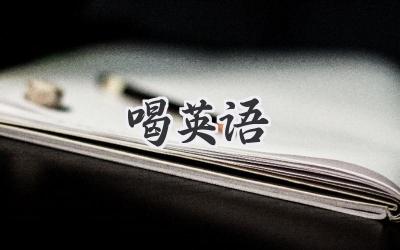 喝英语